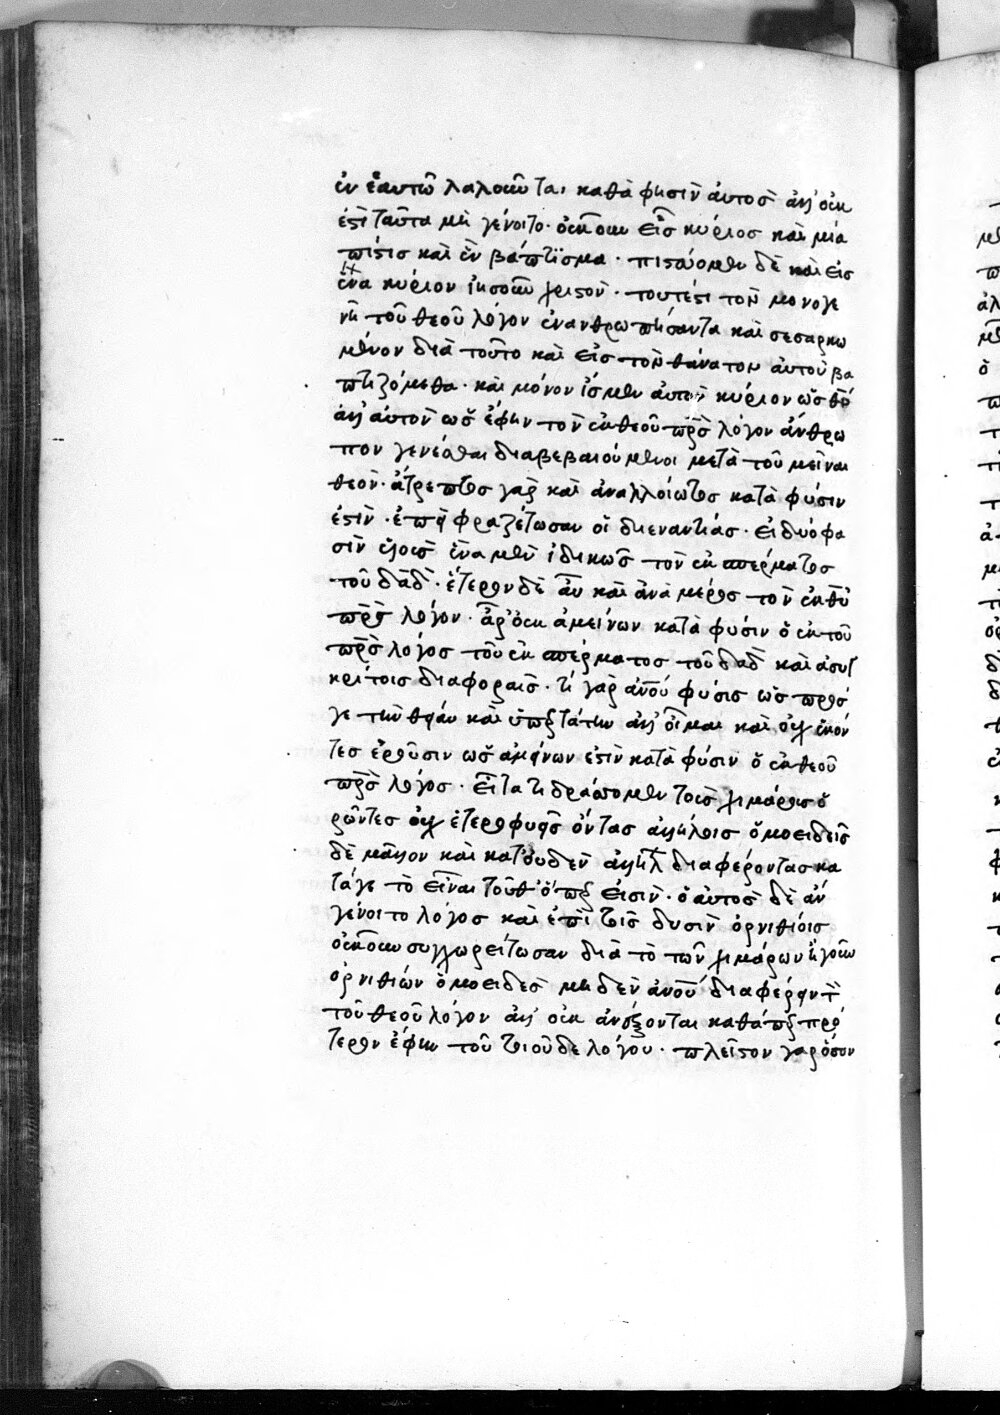 ἐν ἑαυτῶ λαλοῦντα, καθά φησιν αὐτοσ ἀλλ' οὐκ
ἔστι ταῦτα μὴ γένοιτο· οὐκοῦν εἷσ κύριοσ καὶ μία
πίστισ καὶ ἓν βάπτϊσμα · πιστεύομεν δὲ καὶ εἰσ
ἕνα κύριον ἰησοῦν χριστὸν · τουτέστι τὸν μονογε
νῆ τοῦ θεοῦ λόγον ἐνανθρωπήσαντα καὶ σεσαρκω
μένον διὰ τοῦτο καὶ εἰσ τὸν θάνατον αὐτοῦ βα
πτιζόμεθα · καὶ μόνον ἴσμεν αὐτὸν κύριον ὡσ θεόν
αὐτὸν ὡσ ἔφην τὸν ἐκ θεοῦ πρσ λόγον ἄνθρω
πον γενέσθαι διαβεβαιούμενοι μετὰ τοῦ μεῖναι
θεὸν· ἄτρεπτοσ γαρ καὶ ἀναλλοίωτοσ κατὰ φύσιν
ἐστὶν · ἐπεὶ φραζέτωσαν οἱ διεναντίασ · εἰ δύο φα
σὶν υἱοὺσ ἕνα μὲν ἰδικῶσ τὸν ἐκ σπέρματοσ
τοῦ δαδ · ἕτερον δὲ αὖ καὶ ἀνὰ μέροσ τὸν ἐκ θυ
πρσ λόγον · ἆρ' οὐκ ἀμείνων κατὰ φύσιν ὁ ἐκ τοῦ
πρσ λόγοσ τοῦ ἐκ σπέρματοσ τοῦ δαδ καὶ ἀσυγ
κρίτοισ διαφοραῖσ · τί γαρ ἀνου φύσισ ὡσ πρὸσ
γε τὴν θείαν καὶ ὑπερτάτην ἀλλ' οἶμαι καὶ οὐχ ἑκόν
τεσ ἐροῦσιν ὡσ ἀμείνων ἐστὶν κατὰ φύσιν ὁ ἐκ θεοῦ
πρσ λόγοσ · εἶτα τί δράσομεν τοῖσ χιμάροισ ὁ
ρῶντεσ οὐχ ἑτεροφυεῖσ ὄντασ ἀλλήλοισ ὁμοειδεῖσ
δὲ μᾶλλον καὶ κατ' οὐδὲν ἀλλήλ διαφέροντασ κα
τάγε τὸ εἶναι τοῦθ' ὅπερ εἰσὶν · ὁ αὐτοσ δὲ ἂν
γένοιτο λόγοσ καὶ ἐπὶ τοῖσ δυσὶν ὀρνιθίοισ
οὐκοῦν συγχωρείτωσαν διὰ τὸ τῶν χιμάρων ἤγουν
ὀρνιθίων ὁμοειδὲσ μηδὲν ἀνου διαφέρειν τ
τοῦ θεοῦ λόγον ἀλλ' οὐκ ἀνέξονται καθάπερ πρό
τερον ἔφην τοῦ τοιοῦδε λόγου · πλεῖστον γαρ ὅσον